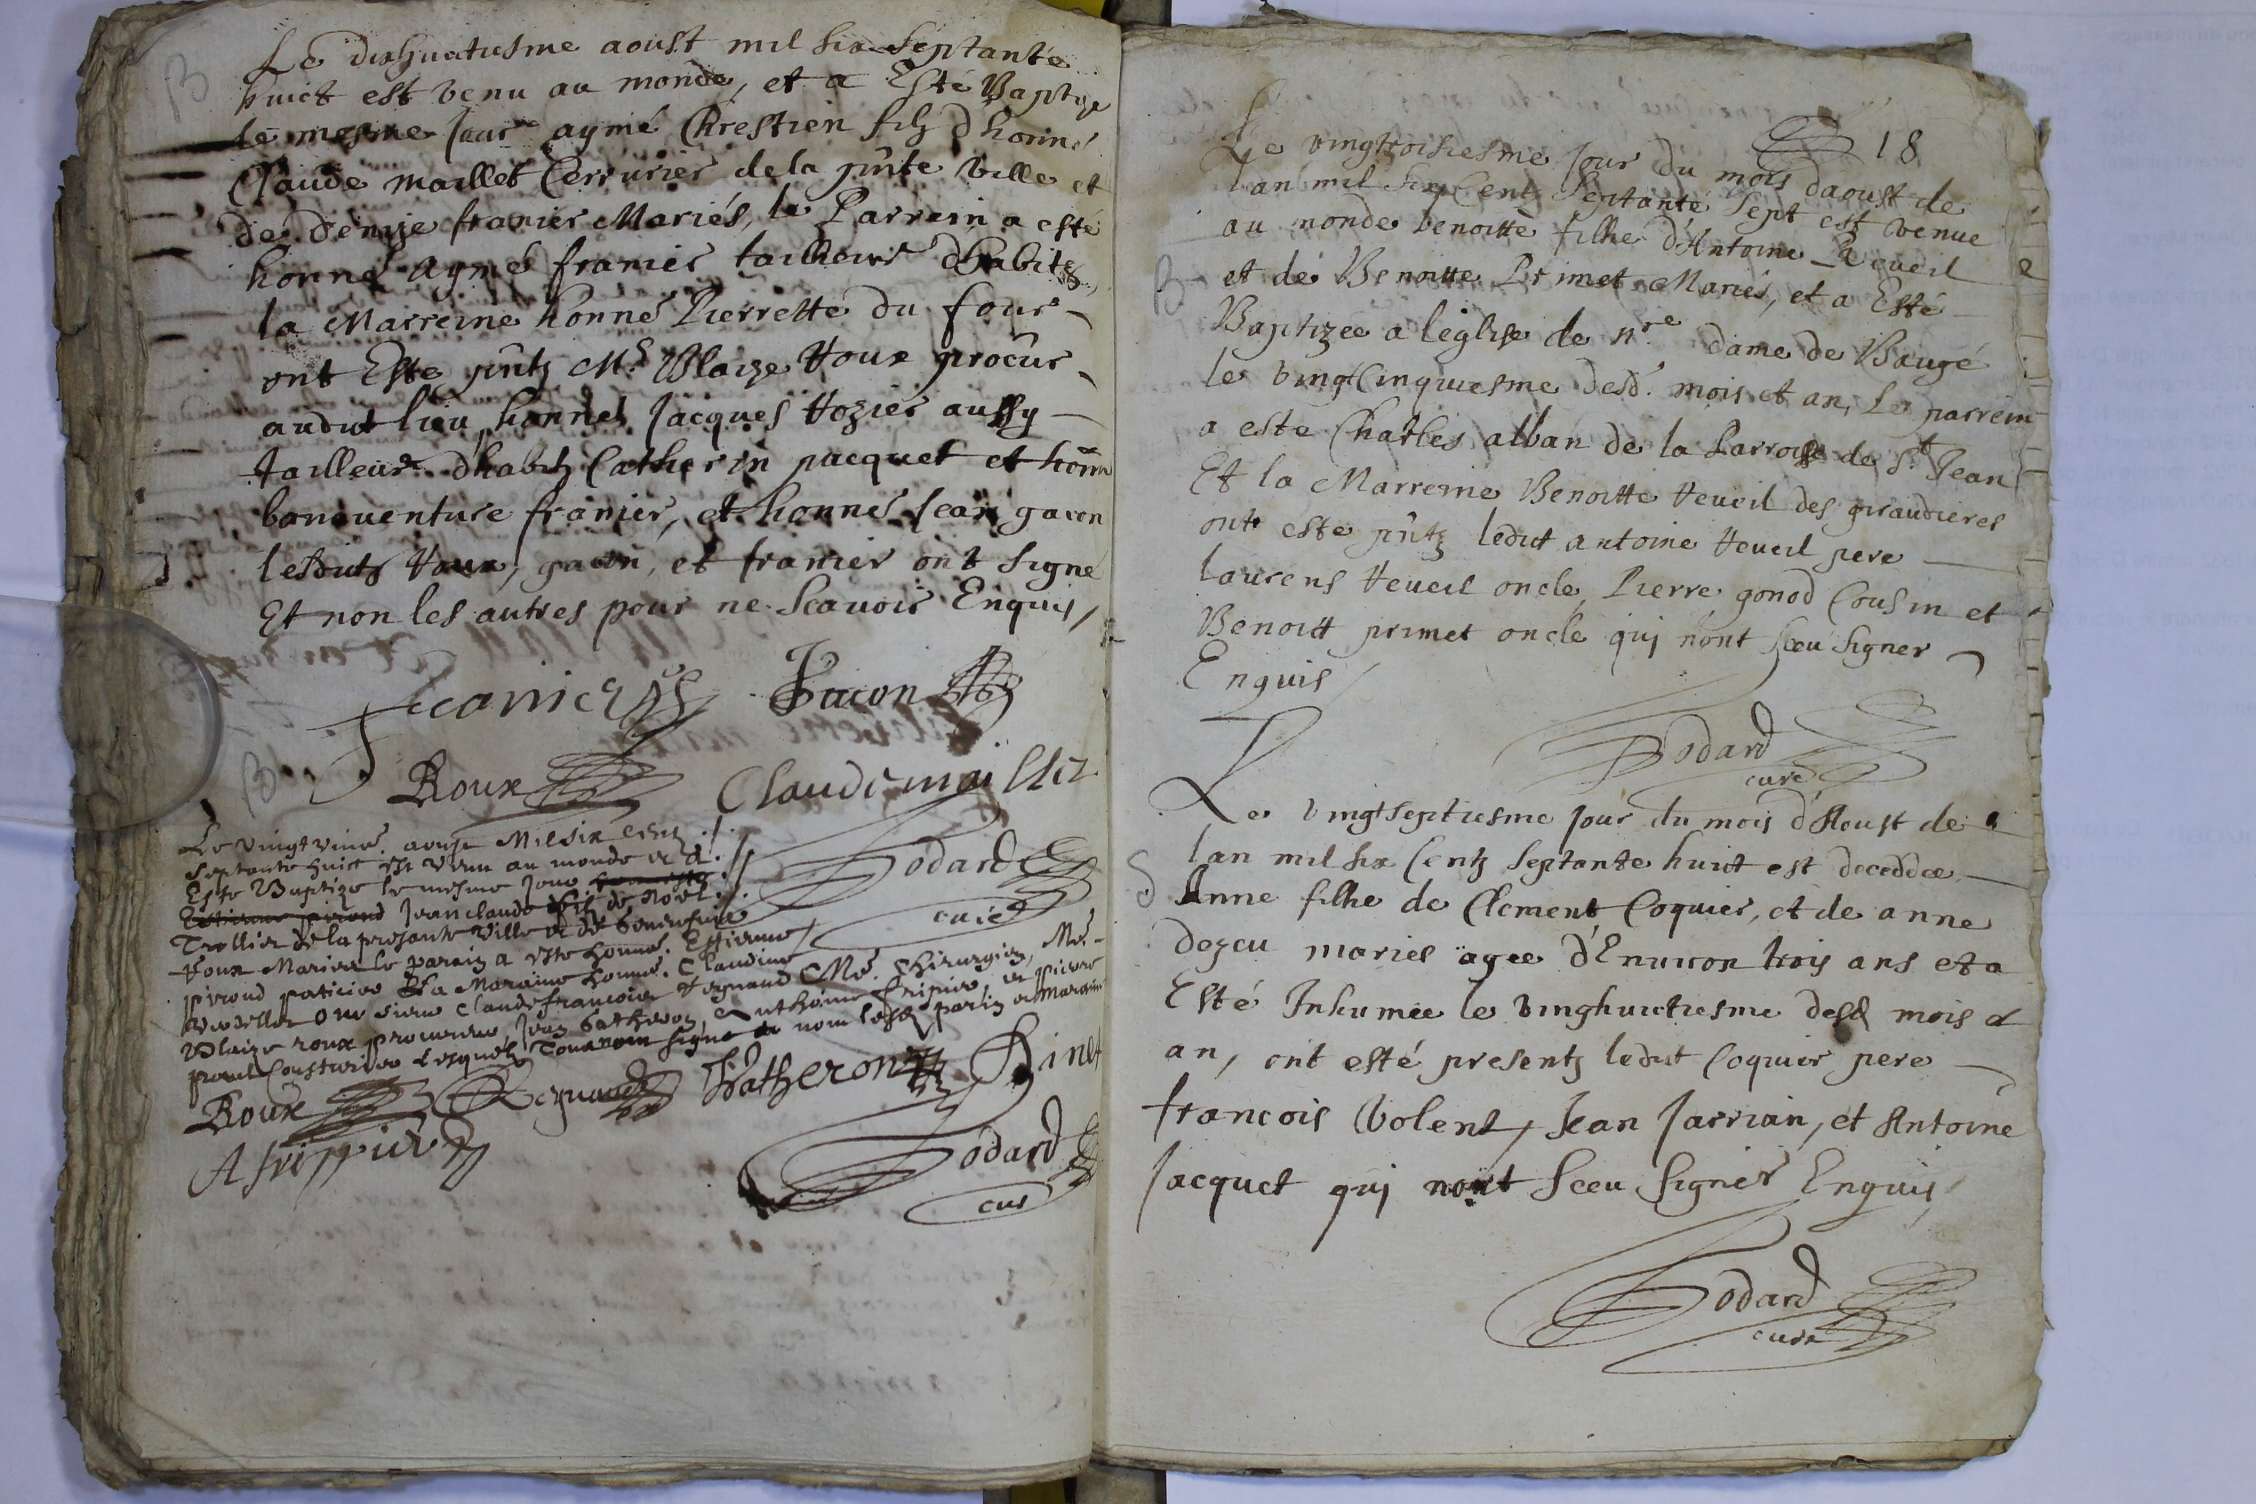 Le dixhuictiesme aoust mil six septante
huict est venu au monde, et a Esté Baptize
le mesme Jour aymé Chrestien filz d'honné
Claude maillet Cerrurier de la pñte ville et
de denyse franier Mariés, le Parrein a esté
honné Aymé franier tailleur d'habitz,
la Marreine honné Pierrette du four
ont Esté pñtz Mr. Blaize Roux procur
audit lieu, honnes Jacques Rozier aussy
tailleur d'habitz Catherin jacquet et honn
bonauenture franier, et honnes Jean gacon
lesditz Roux, gacon, et franier ont signé
Et non les autres pour ne scauoir Enquis,
franier Gacon
Roux Claude mailliet
B
Godard
curé
Le vingt uniè. aoust Mil six centz
septante huict est venu au monde et a
Esté Baptize le mesme Jour
Estienne pirond Jean claude fils de Noel
Trollier de la presante ville et de
Roux Mariea le parein a este honné. Estienne
pirond paticier Et la Maraine honné. Claudine
sieur Claude francois Regnaud Me. Chirurgien, Me.
Blaize roux procureur Jean Batheron, Anthoine fripier et pierre
paul Cousturier lesquelz Tous ont signe non lesd parin et Maraine
Roux Regnaud Batheron Pinet
A frippier
Godard
cure
18
Le vingtroisiesme Jour du mois daoust de
lan mil six Centz Septante Sept est venue
au monde benoitte filhe d'Antoine Reveil
B et de Benoitte Primet Mariés, et a Esté
Baptizée a léglise de nre dame de Baugé
le vingtCinquiesme desd. mois et an, Le parrein
a este Charles alban de la Parroisse de St Jean
Et la Marreine Benoitte Reveil des giraudieres
ont este pñtz ledit antoine Reveil pere
laurens Reveil oncle, Pierre gonod Cousin et
Benoitt primet oncle qui n'ont sceu signer
Enquis
Godard
curé
Le vingtseptiesme Jour du mois d'Aoust de
lan mil six Centz septante huict est decedée
Anne filhe de Clement Coquier, et de anne
dezcu mariés agee d'Enuiron trois ans et a
Esté Inhumée le vinghuictiesme desd mois et
an, ont esté presentz ledit Coquier pere
francois Volent, Jean Jarrian, et Antoine
Jacquet qui n'ont Sceu signer Enquis,
Godard
curé